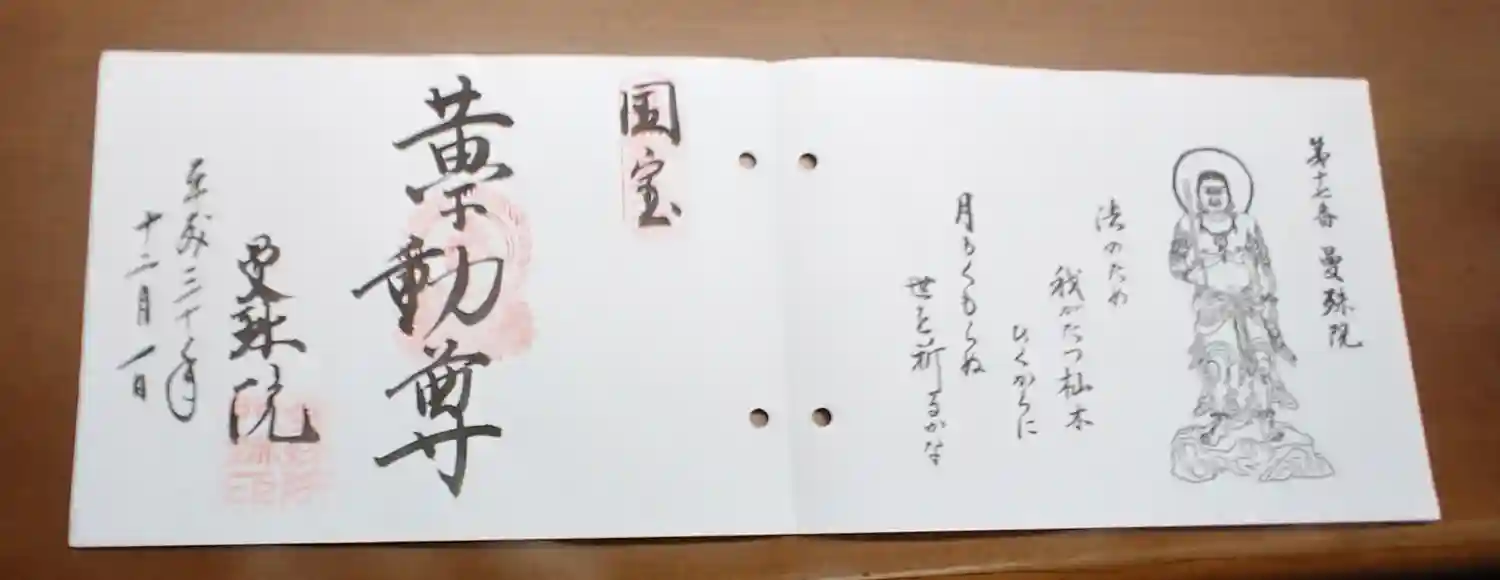 第十七番 曼殊院
法のため
我がたつ杣木
ひくからに
月もくもらぬ
世を祈るかな
国宝
黄不動尊
曼殊院
平成三十年
十二月一日